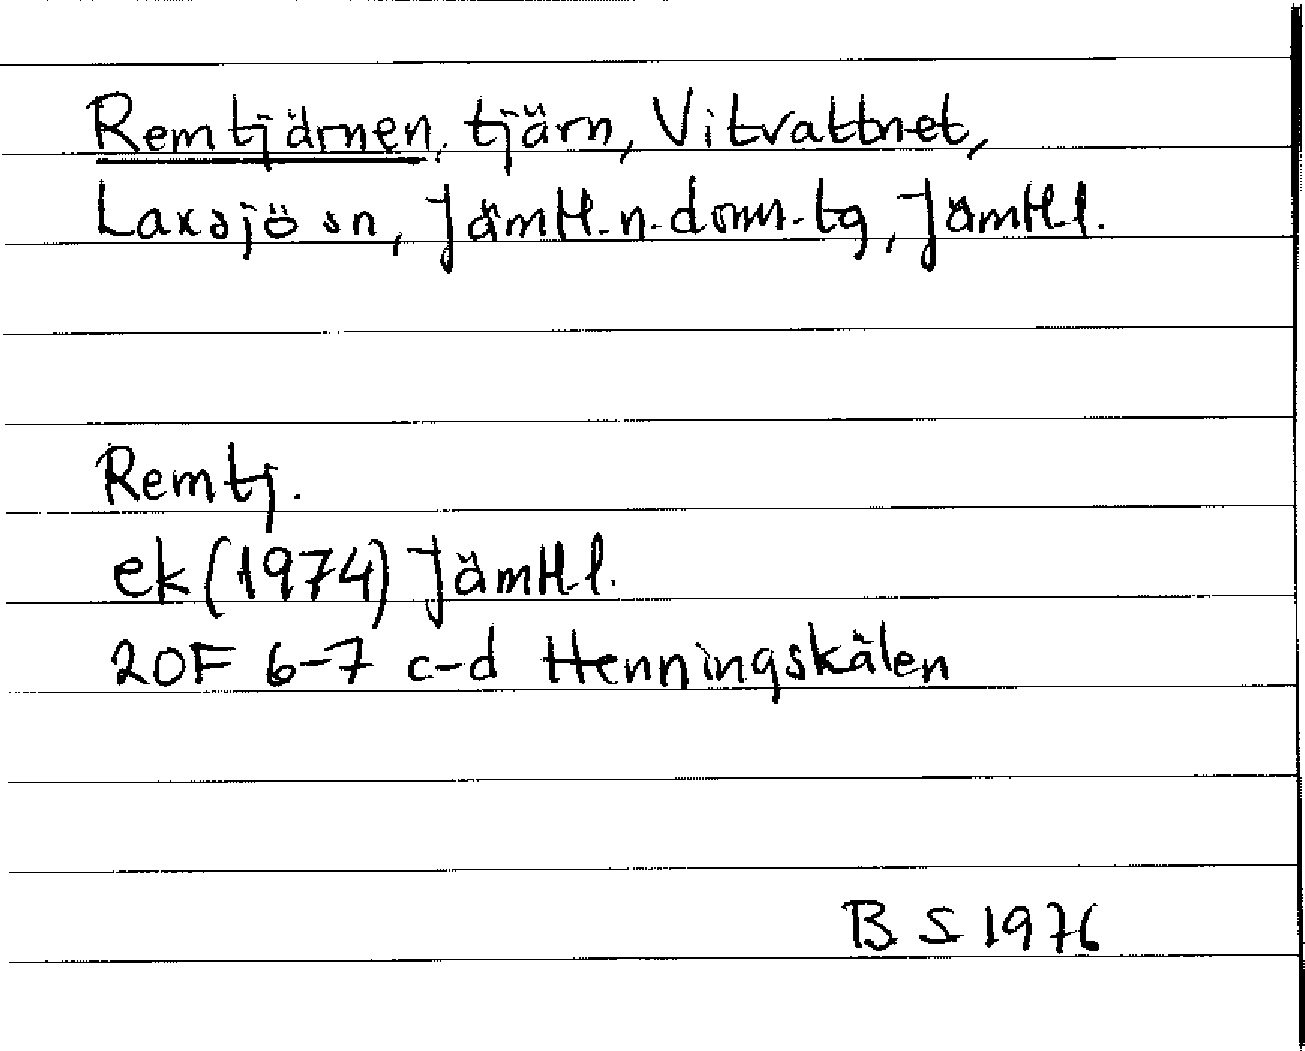 Remtjärnen, tjärn, Vitvattnet,
Laxsjö sn, Jämtl. n. doms. tg, Jämtl l.
Remtj.
ek (1974) Jämtl. l.
20F 6-7 c-d Henningskälen
B S 1976